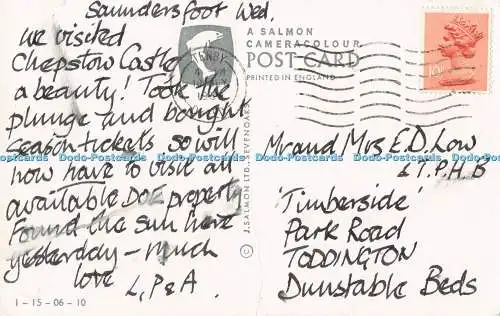 Saundersfoot Wed.
we visited
Chepstow Castle
a beauty! Took the
plunge and bought
season tickets so will
now have to visit all
available DOE property
Found the sun here
yesterday - Much
love L, P & A.
1-15-06-10
TENBY
A SALMON
CAMERACOLOUR
POST CARD
PRINTED IN ENGLAND
© J. SALMON LTD., SEVENOAKS
Mr and Mrs E.D. Low
& T.P.H.B
Timberside
Park Road
TODDINGTON
Dunstable Beds
Dodo-Postcards Dodo-Postcards Dodo-Postcards Dodo-Postcards Dodo-Postcards Dodo-Postcards